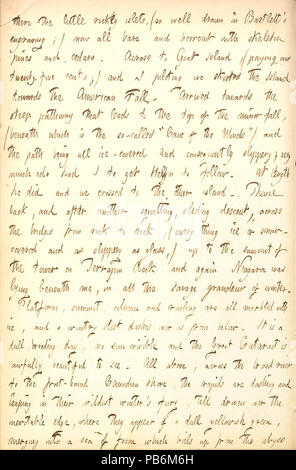 there the little rockly islets, (so well drawn in Bartlett's
engraving;) now all bare and horrent with skeleton
pines and cedars. Across to Goat Island (paying our
twenty five cents;) and I piloting we skirted the island
towards the American Fall. Arrived towards the
steep pathway that leads to the top of the minor fall,
(beneath which is the so-called "Cave of the Winds") and
the path being all ice-covered and consequently slippery; very
much ado had I to get Heylyn to follow. At length
he did and we crossed to the other island. Thence
back, and after another squatting, sliding descent, across
the bridge from rock to rock (every thing ice or snow-
covered and as slippery as glass,) up to the summit of
the tower on Terrapin Rock and again Niagara was
lying beneath me, in all the savage grandeur of winter.
Platform, summit, column and railing are all marbled with
ice, and a wintry sleet dashes over us from below. It is a
dull brooding day, no sun visible and the Great Cataract is
awfully beautiful to see. All above, across the broad river
to the frost-bound Canadian shore, the rapids are dashing and
leaping in their wildest winter's fury, till driven over the
inevitable edge, where they appear of a dull yellowish green,
merging into a sea of foam which boils up from the abyss